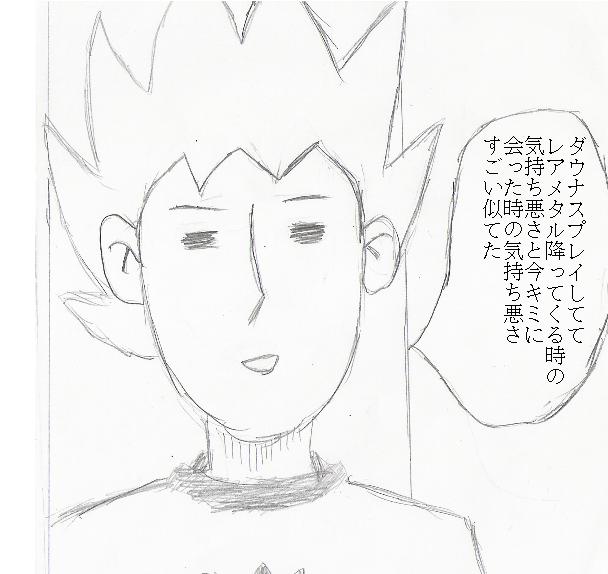 ダウナスプレイしてて
レアメタル降ってくる時の
気持ち悪さと今キミに
会った時の気持ち悪さ
すごい似てた